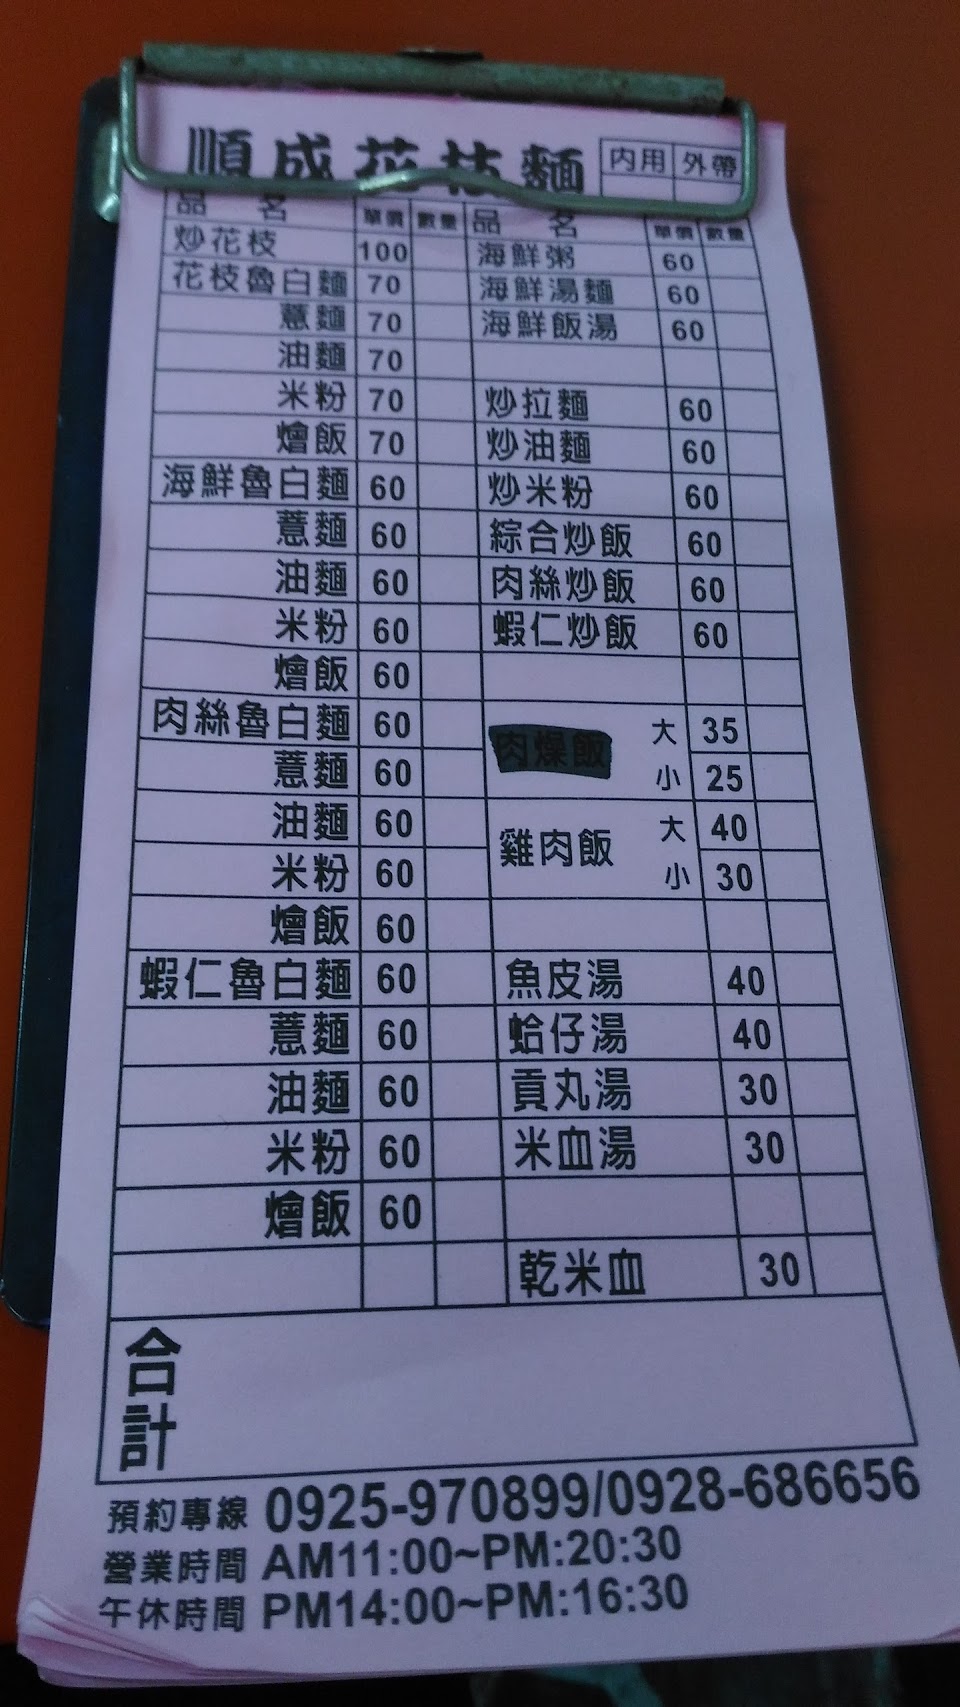 順成花枝麵 內用 外帶
品名 單價 數量 品名 單價 數量
炒花枝 100 海鮮粥 60
花枝魯白麵 70 海鮮湯麵 60
薏麵 70 海鮮飯湯 60
油麵 70
米粉 70 炒拉麵 60
燴飯 70 炒油麵 60
海鮮魯白麵 60 炒米粉 60
薏麵 60 綜合炒飯 60
油麵 60 肉絲炒飯 60
米粉 60 蝦仁炒飯 60
燴飯 60
肉絲魯白麵 60 肉燥飯 大 35
薏麵 60 小 25
油麵 60 雞肉飯 大 40
米粉 60 小 30
燴飯 60
蝦仁魯白麵 60 魚皮湯 40
薏麵 60 蛤仔湯 40
油麵 60 貢丸湯 30
米粉 60 米血湯 30
燴飯 60
乾米血 30
合計
預約專線 0925-970899/0928-686656
營業時間 AM11:00~PM:20:30
午休時間 PM14:00~PM:16:30